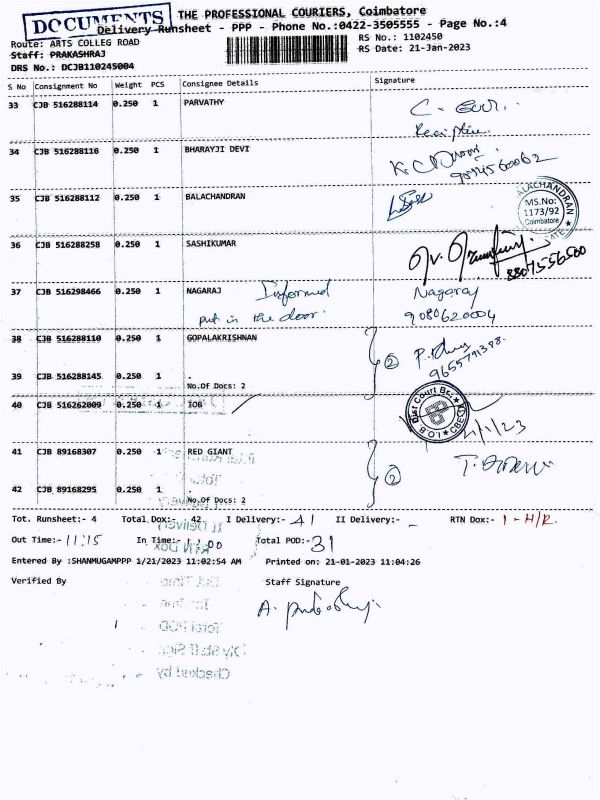 DOCUMENTS
THE PROFESSIONAL COURIERS, Coimbatore
Delivery Runsheet - PPP - Phone No.:0422-3505555 - Page No.:4
Route: ARTS COLLEG ROAD
RS No.: 1102450
Staff: PRAKASHRAJ
RS Date: 21-Jan-2023
DRS No.: DCJB110245004
S No Consignment No Weight PCS Consignee Details Signature
33 CJB 516288114 0.250 1 PARVATHY
34 CJB 516288116 0.250 1 BHARAYJI DEVI
35 CJB 516288112 0.250 1 BALACHANDRAN
BALACHANDRAN
MS.No:
1173/92
Coimbatore
36 CJB 516288258 0.250 1 SASHIKUMAR
8807556500
37 CJB 516298466 0.250 1 NAGARAJ Informed Nagaraj
put in the door. 9080620004
38 CJB 516288110 0.250 1 GOPALAKRISHNAN
2
9655791398.
39 CJB 516288145 0.250 1 .
No.Of Docs: 2
40 CJB 516262009 0.250 1 IOB
Dist Court Br.
41 CJB 89168307 0.250 1 RED GIANT
2
42 CJB 89168295 0.250 1 .
No.Of Docs: 2
Tot. Runsheet:- 4 Total Dox:- 42 I Delivery:- 41 II Delivery:- - RTN Dox:- 1 - H/R.
Out Time:- 11:15 In Time:- Total POD:- 31
Entered By :SHANMUGAMPPP 1/21/2023 11:02:54 AM Printed on: 21-01-2023 11:04:26
Verified By Staff Signature
Total POD
Dly Staff Sign
Checked by